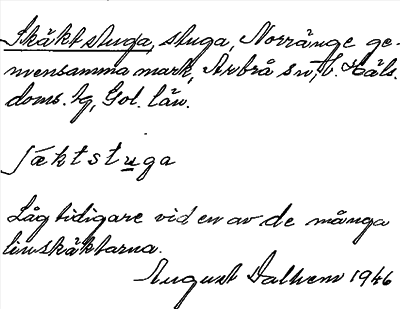 Skäktstuga, stuga, Norränge ge-
mensamma mark, Arbrå sn, v. Häls.
doms. tg, Gvl. län.
ʃæktstuga
Låg tidigare vid en av de många
linskäktarna.
August Dalhem 1946